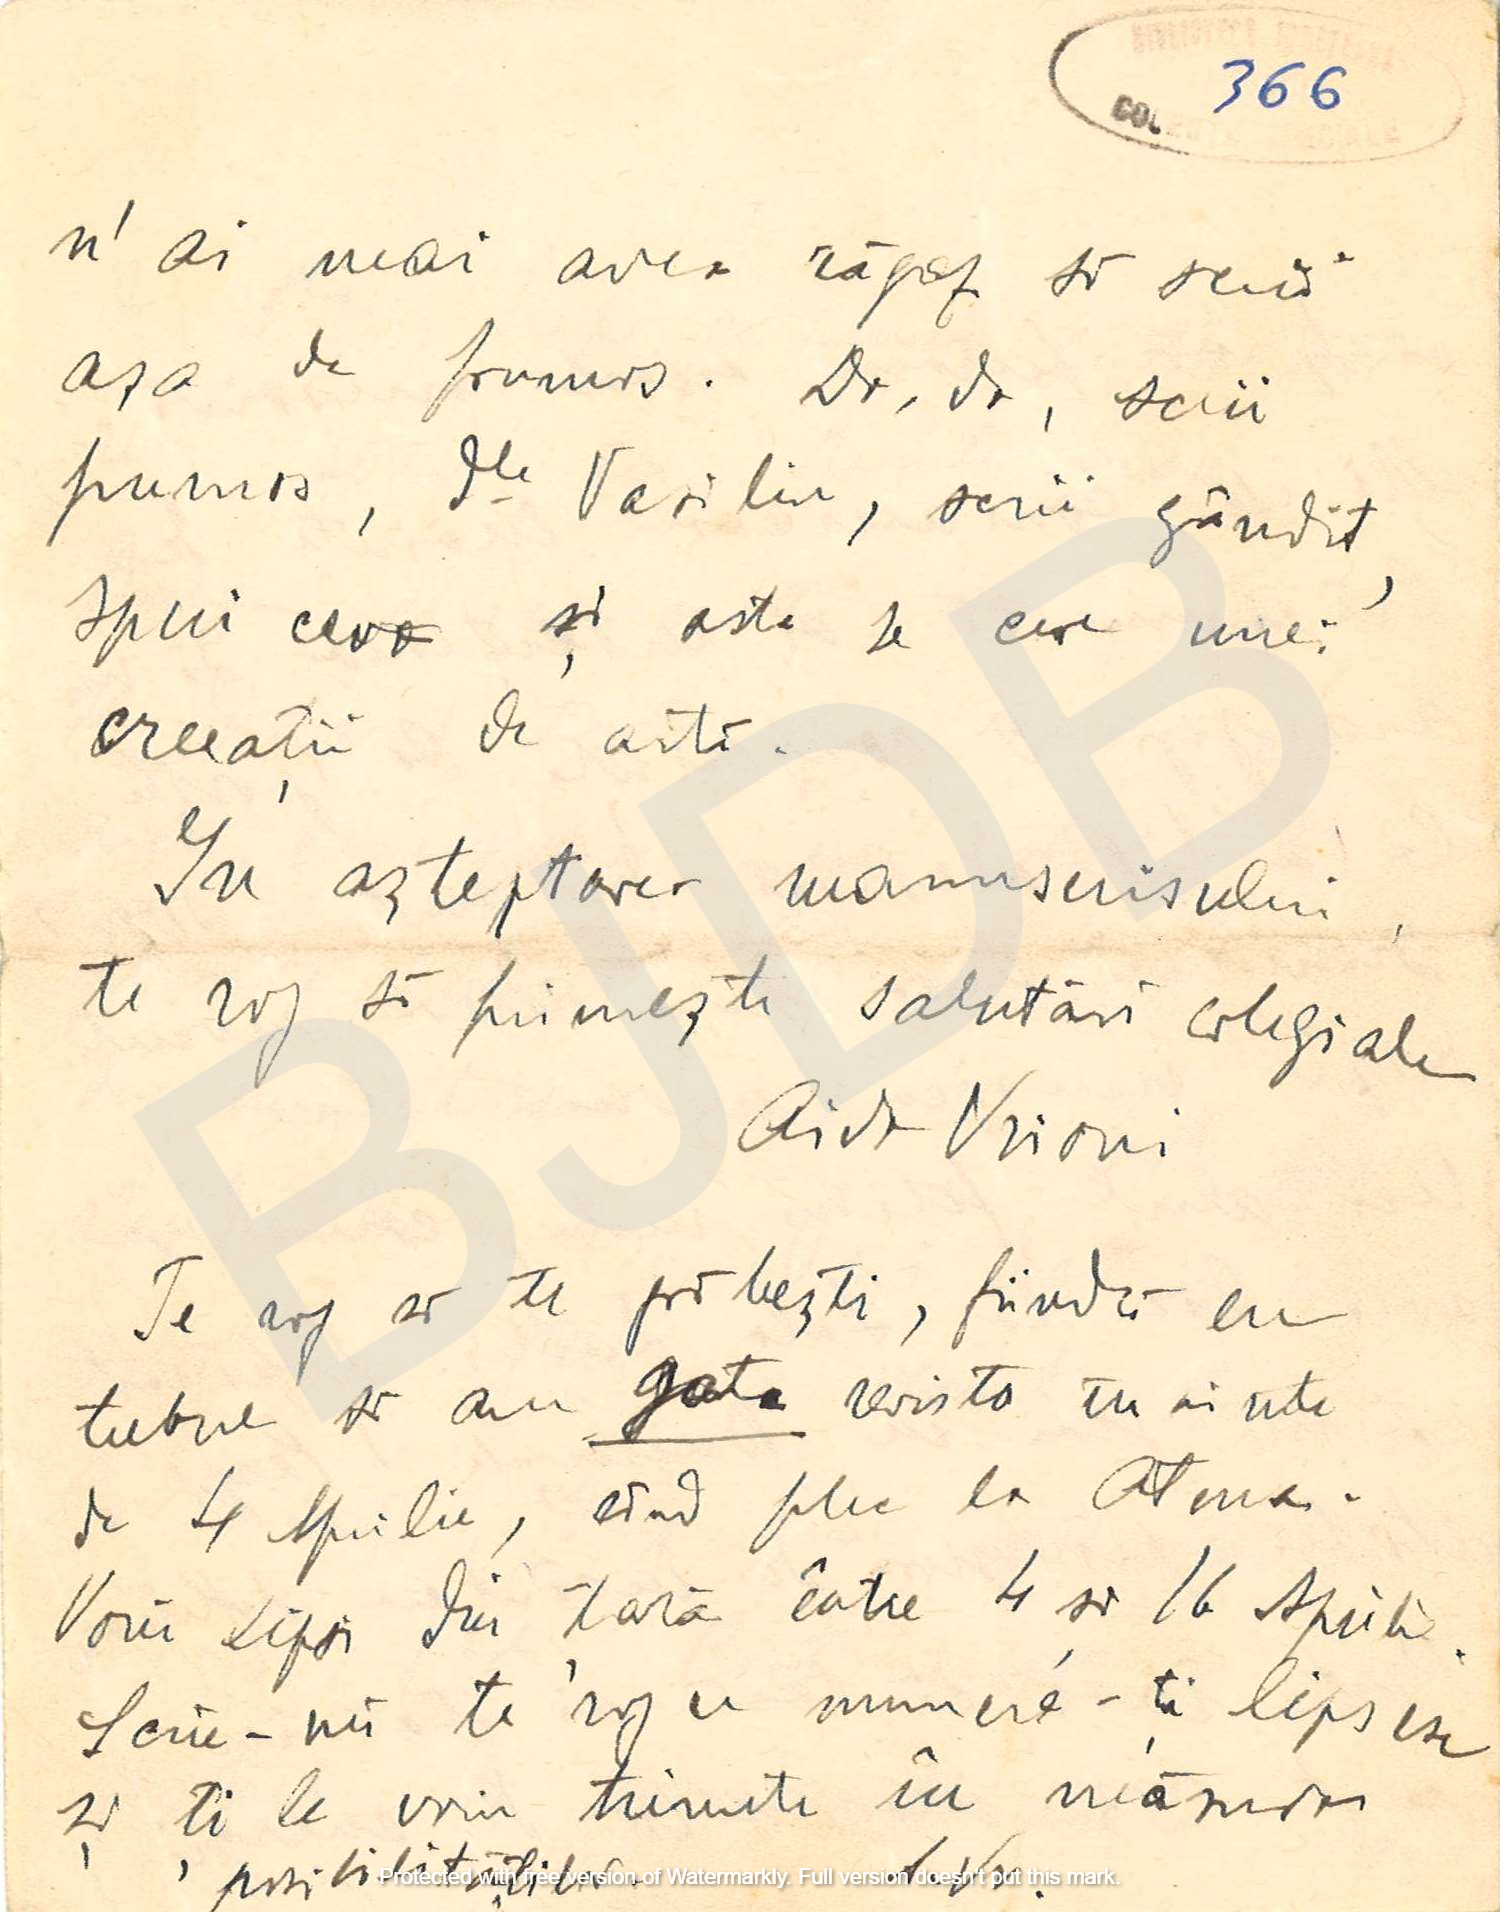 BIBLIOTECA JUDEȚEANĂ
366
COLECȚII SPECIALE
n'ai mai avea răgaz să scrii
așa de frumos. Da, da, scrii
frumos, dle Vasiliu, scrii gândit,
spui ceva și asta se cere unei
creeații de artă.
In așteptarea manuscrisului,
te rog să primești salutări colegiale
Aida Vrioni
Te rog să te grăbești, fiindcă eu
trebue să am gata revista înainte
de 4 Aprilie, când plec la Atena.
Voiu lipsi din țară între 4 și 16 Aprilie.
Scrie-mi te rog ce numere-ți lipsesc
și ți le voiu trimete în măsura
posibilităților. A. Vr.
BJDB
Protected with free version of Watermarkly. Full version doesn't put this mark.